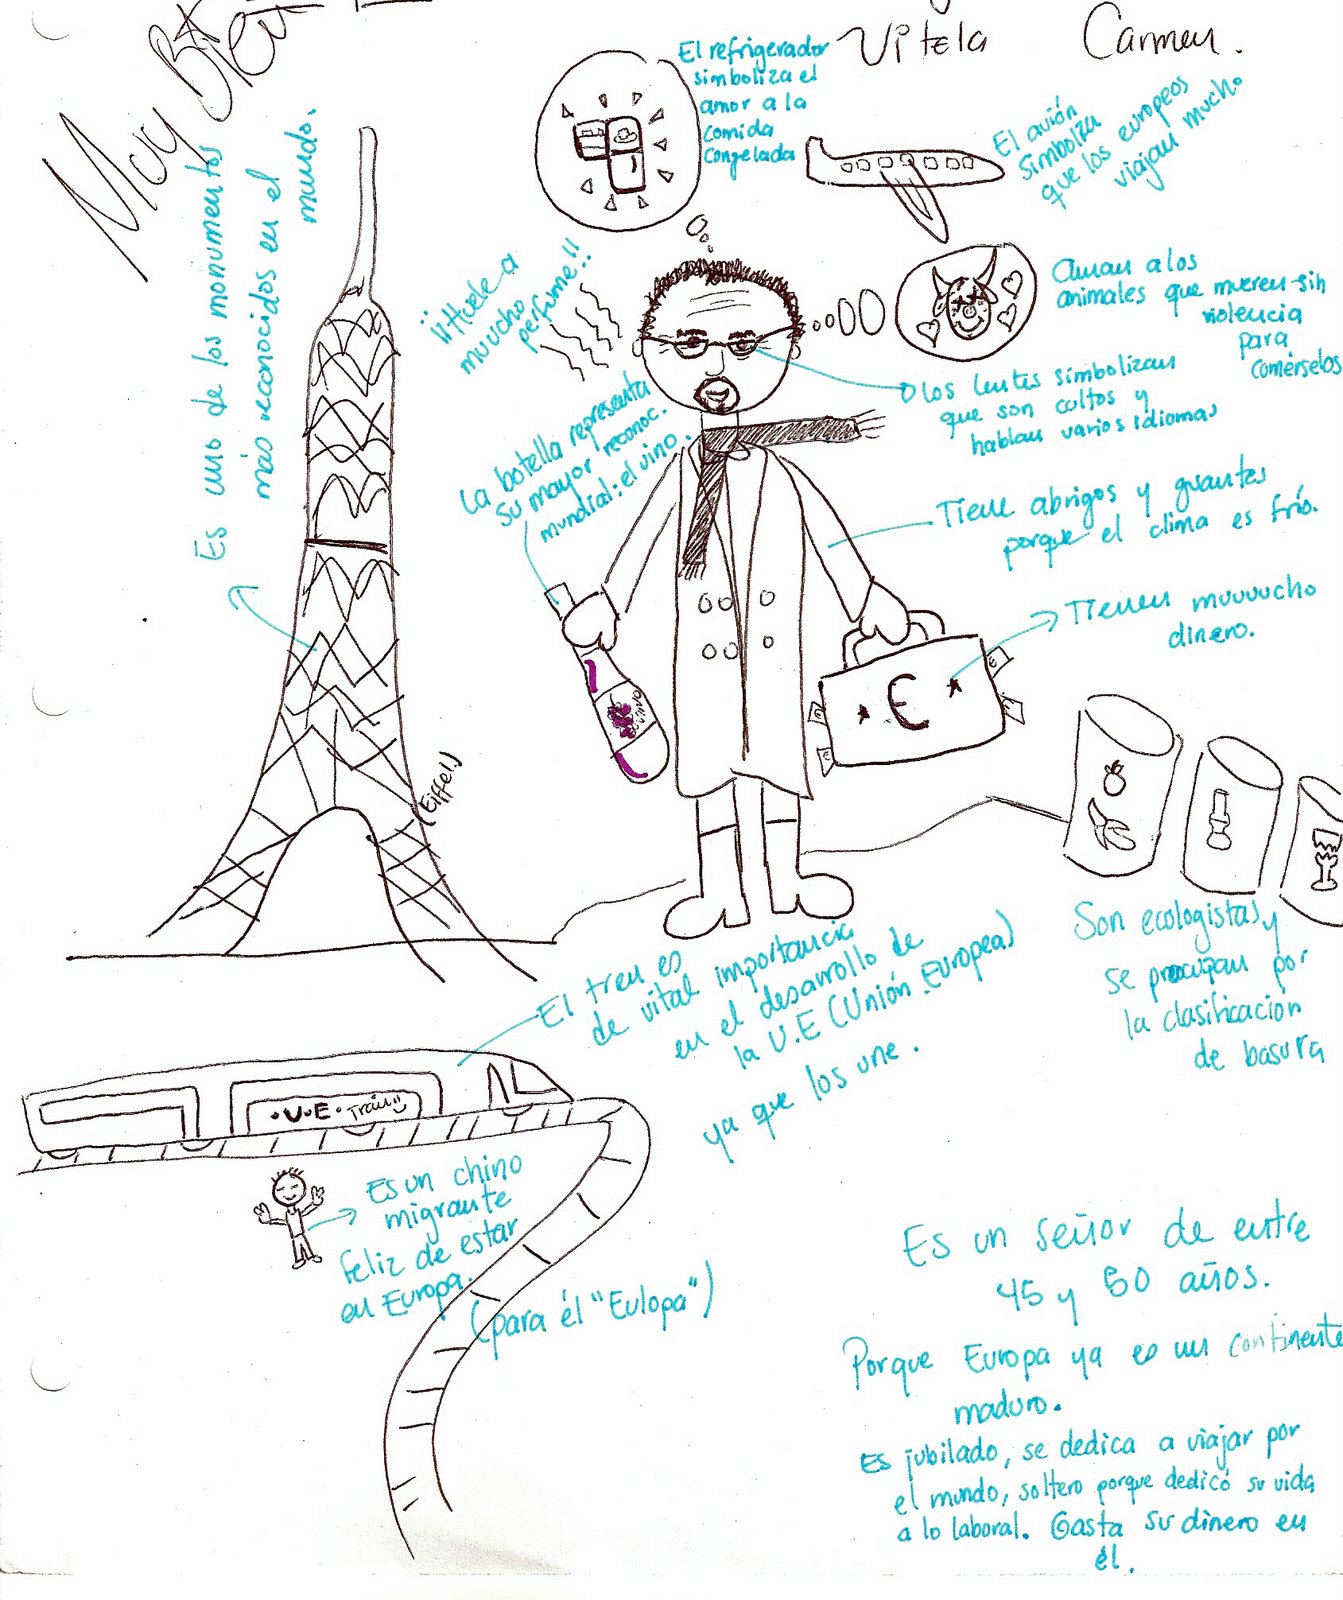 Muy Bien
Vitela Carmen.
El refrigerador
simboliza el
amor a la
comida
congelada
El avión
simboliza
que los europeos
viajan mucho
Es uno de los monumentos
más reconocidos en el
mundo.
¡¡Huele a
muucho
perfume!!
Aman a los
animales que mueren sin
violencia
para
comérselos
Los lentes simbolizan
que son cultos y
hablan varios idiomas
La botella representa
su mayor reconoc.
mundial: el vino.
Tiene abrigos y guantes
porque el clima es frío.
Tienen muuuucho
dinero.
€
vino
(Eiffel)
Son ecologistas y
se preocupan por
la clasificación
de basura
El tren es
de vital importancia
en el desarrollo de
la U.E (Unión Europea)
ya que los une.
·U·E· Train
Es un chino
migrante
feliz de estar
en Europa.
(para él "Eulopa")
Es un señor de entre
45 y 50 años.
Porque Europa ya es un continente
maduro.
Es jubilado, se dedica a viajar por
el mundo, soltero porque dedicó su vida
a lo laboral. Gasta su dinero en
él.